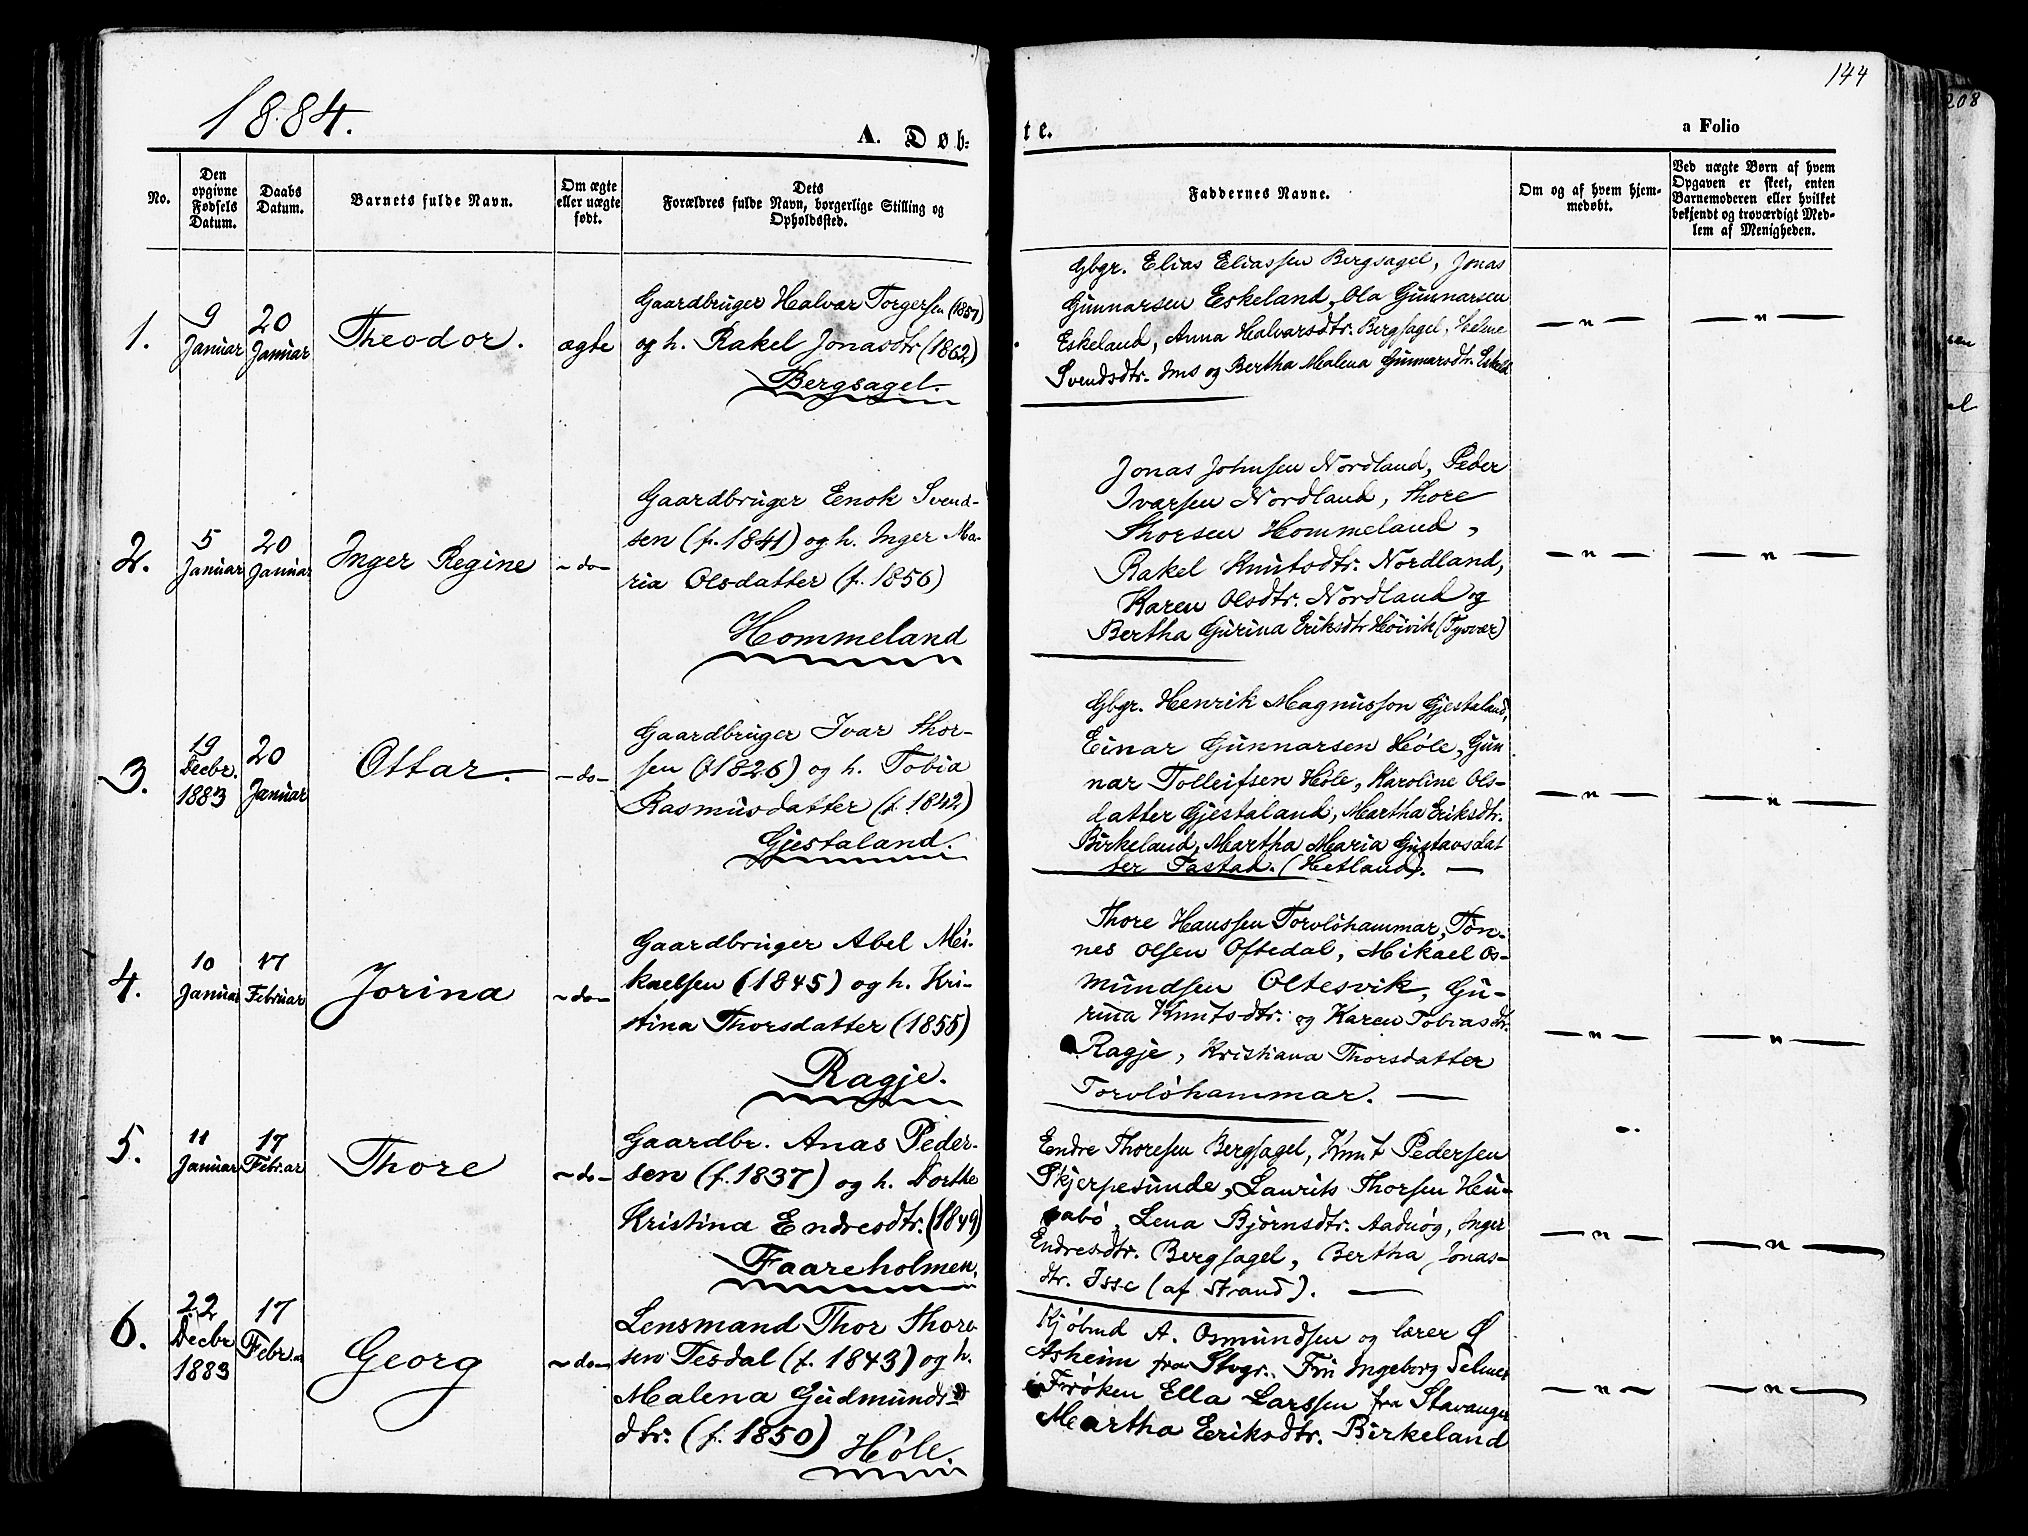 144
208
1884.
A. Døb-
te.
a Folio
No.
Den
opgivne
Fødsels
Datum.
Daabs
Datum.
Barnets fulde Navn.
Om ægte
eller uægte
født.
Dets
Forældres fulde Navn, borgerlige Stilling og
Opholdssted.
Faddernes Navne.
Om og af hvem hjem-
medøbt.
Ved uægte Børn af hvem
Opgaven er skeet, enten
Barnemoderen eller hvilket
bekjendt og troværdigt Med-
lem af Menigheden.
1.
9
Januar
20
Januar
Theodor.
ægte
Gaardbruger Halvar Torgersen (1857)
og h. Rakel Jonasdtr (1862)
Bergsagel.
Gbgr. Elias Eliassen Bergsagel, Jonas
Gunnarsen Eskeland, Ola Gunnarsen
Eskeland, Anna Halvarsdtr. Bergsagel, Helene
Svendsdtr. Ims og Bertha Malena Gunnarsdtr. Eskeld
— " —
— " —
2.
5
Januar
20
Januar
Inger Regine
- do -
Gaardbruger Eenok Svend-
sen (f. 1841) og h. Inger Ma-
ria Olsdatter (f. 1856)
Hommeland
Jonas Johnsen Nordland, Peder
Ivarsen Nordland, Thore
Thorsen Hommeland,
Rakel Knutsdtr. Nordland,
Karen Olsdtr. Nordland og
Bertha Gurina Eriksdtr Høivik (Tysvær)
— " —
— " —
3.
19
Decbr.
1883
20
Januar
Ottar.
- do -
Gaardbruger Ivar Thor-
sen (f 1826) og h. Tobia
Rasmusdatter (f. 1842)
Gjestaland.
Gbgr. Henrik Magnusson Gjestaland,
Einar Gunnarsen Høle, Gun
nar Tolleifsen Høle, Karoline Ols-
datter Gjestaland, Martha Eriksdtr.
Birkeland, Martha Maria Gustavsdat
ter Tastad. (Hetland). —
— " —
— " —
4.
10
Januar
17
Februar
Jorina
- do -
Gaardbruger Abel Mi-
kaelsen (1845) og h. Kri-
stina Thorsdatter (1855)
Ragje.
Thore Hanssen Torvløhammar, Tøn-
nes Olsen Oftedal, Mikael Os-
mundsen Oltesvik, Gu-
rina Knutsdtr. og Karen Tobiasdtr.
Ragje, Kristiana Thorsdatter
Torvløhammar. —
— " —
— " —
5.
11
Januar
17
Februar
Thore
- do -
Gaardbr. Anas Peder-
sen (f. 1837) og h. Dorthe
Kristina Endresdtr. (1849)
Faareholmen.
Endre Thoresen Bergsagel, Knut Pedersen
Skjerpesunde, Laurits Thorsen Heu-
abø, Lena Bjørnsdtr. Aadnøg, Inger
Endresdtr. Bergsagel, Bertha Jonas-
dtr. Isse (af Strand). —
— " —
— " —
6.
22
Decbr
1883
17
Febr.
Georg
- do -
Lensmand Thor Thor-
sen Tesdal (f. 1843) og h.
Malena Gudmunds-
dtr. (f. 1850)
Høle.
Kjøbmd A. Osmundsen og lærer Ø
Asheim fra Stvgr. Fru Ingeborg Selmer
Frøken Ella Larssen fra Stavanger
Martha Eeriksdtr. Birkeland
— " —
— " —